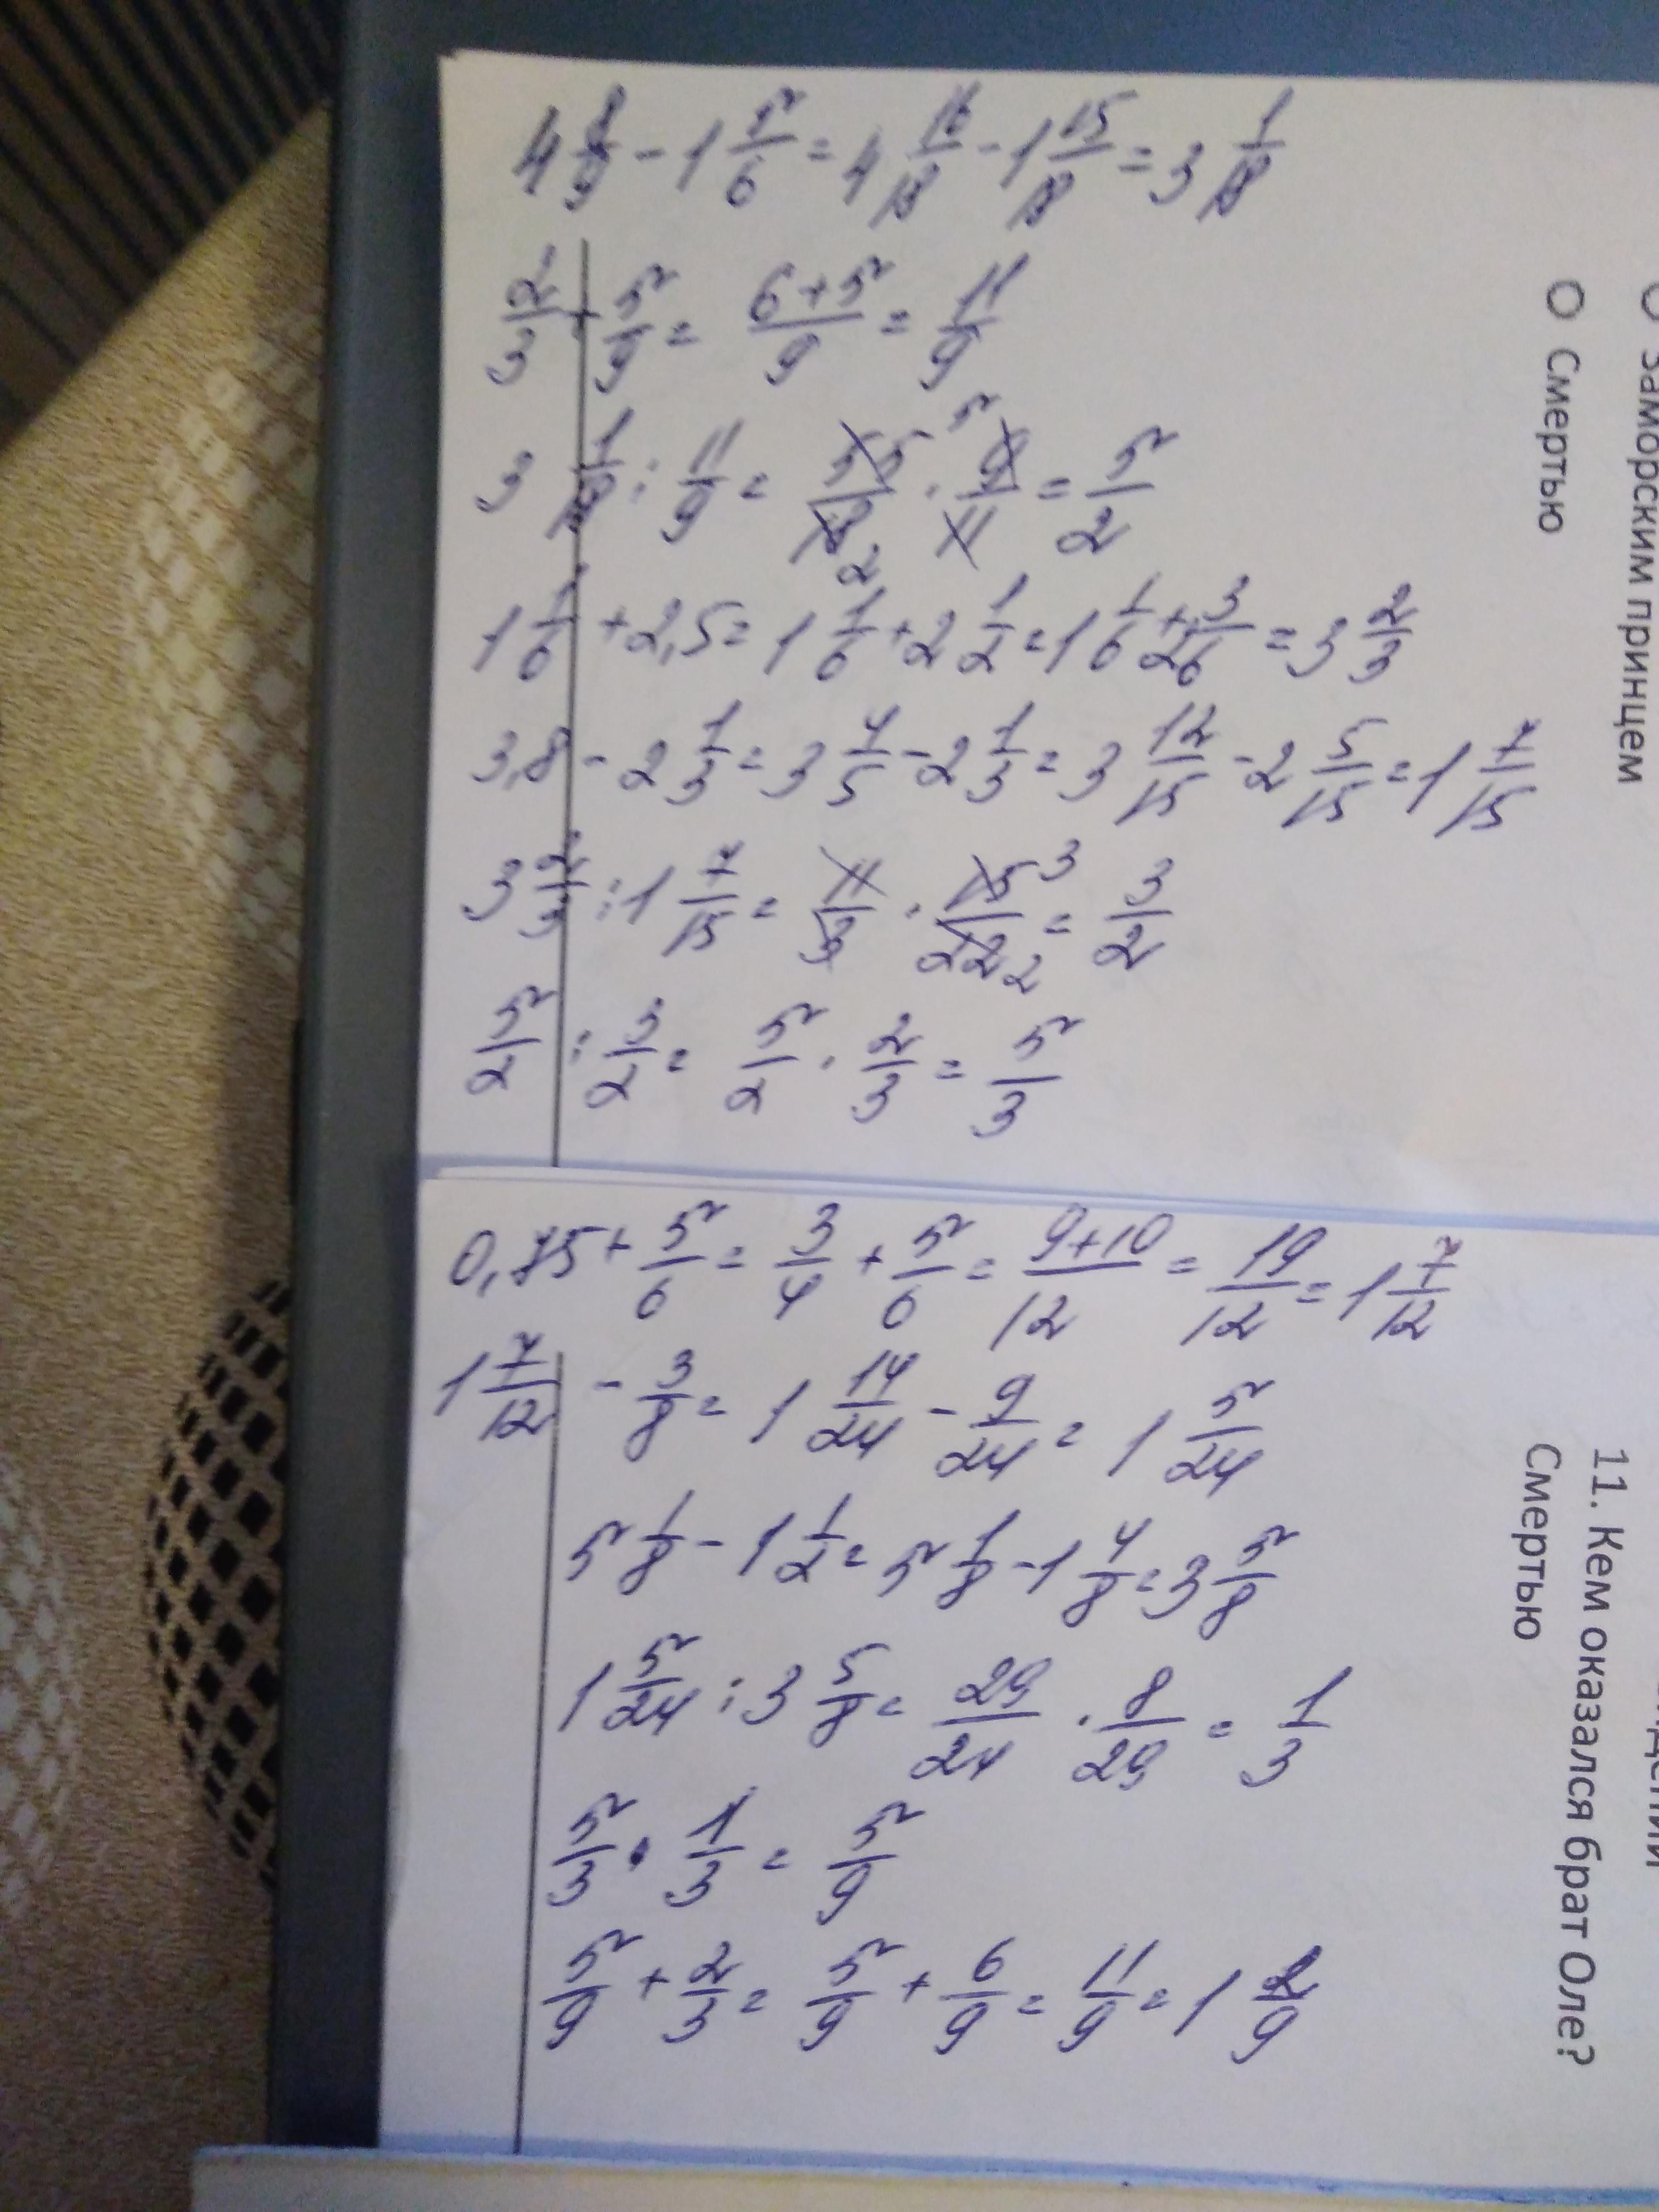 4 8/9 - 1 5/6 = 4 16/18 - 1 15/18 = 3 1/18
2/3 + 5/9 = (6+5)/9 = 11/9
3 1/18 : 11/9 = 55/18 2 · 5 9/11 = 5/2
1 1/6 + 2,5 = 1 1/6 + 2 1/2 = 1 1/6 + 2 3/6 = 3 2/3
3,8 - 2 1/3 = 3 4/5 - 2 1/3 = 3 12/15 - 2 5/15 = 1 7/15
3 2/3 : 1 7/15 = 11/3 · 15 3/22 2 = 3/2
5/2 : 3/2 = 5/2 · 2/3 = 5/3
0,75 + 5/6 = 3/4 + 5/6 = (9+10)/12 = 19/12 = 1 7/12
1 7/12 - 3/8 = 1 14/24 - 9/24 = 1 5/24
5 1/8 - 1 1/2 = 5 1/8 - 1 4/8 = 3 5/8
1 5/24 : 3 5/8 = 29/24 · 8/29 = 1/3
5/3 · 1/3 = 5/9
5/9 + 2/3 = 5/9 + 6/9 = 11/9 = 1 2/9
Заморским принцем
Смертью
11. Кем оказался брат Оле?
Смертью